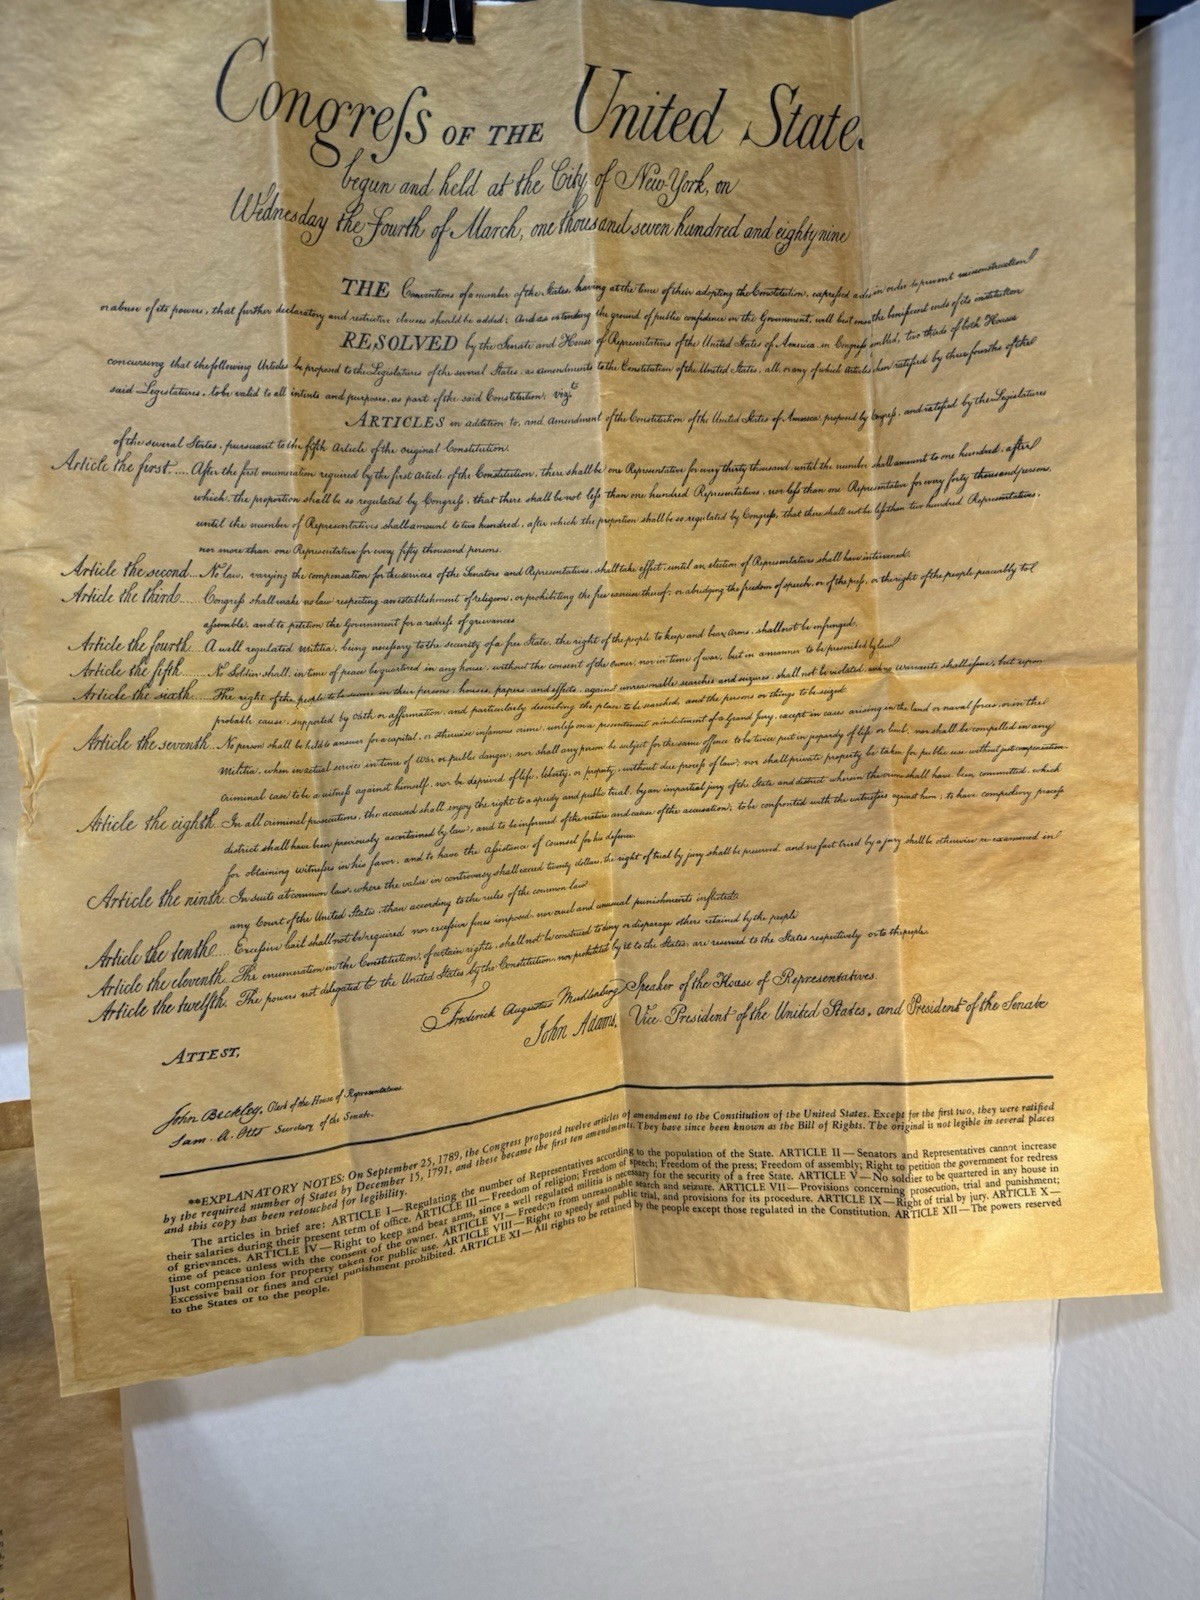 Congreſs OF THE United States
begun and held at the City of New-York, on
Wednesday the Fourth of March, one thousand seven hundred and eighty nine
THE Conventions of a number of the States, having at the time of their adopting the Constitution, expreſsed a des in order to prevent misconstruction
or abuse of its powers, that further declaratory and restrictive clauses should be added: And as extending the ground of public confidence in the Government, will best ens the beneficent ends of its institution
RESOLVED by the Senate and House of Representatives of the United States of America, in Congreſs mbled, two thirds of both Houses
concurring that the following Articles be proposed to the Legislatures of the several States, as amendments to the Constitution of the United States, all, or any of which Articles, hen ratified by three fourths of the
said Legislatures, to be valid to all intents and purposes, as part of the said Constitution; vizt.
ARTICLES in addition to, and amendment of the Constitution of the United States of America, proposed by Congreſs, and ratified by the Legislatures
of the several States, pursuant to the fifth Article of the original Constitution.
Article the first.... After the first enumeration required by the first Article of the Constitution, there shall be one Representative for every thirty thousand, until the number shall amount to one hundred, after
which, the proportion shall be so regulated by Congreſs, that there shall be not leſs than one hundred Representatives, nor leſs than one Representative for every forty thousand persons,
until the number of Representatives shall amount to two hundred, after which the proportion shall be so regulated by Congreſs, that there shall not be leſs than two hundred Representatives,
nor more than one Representative for every fifty thousand persons.
Article the second... No law, varying the compensation for the services of the Senators and Representatives, shall take effect, until an election of Representatives shall have intervened.
Article the third..... Congreſs shall make no law respecting an establishment of religion, or prohibiting the free exercise thereof; or abridging the freedom of speech, or of the preſs, or the right of the people peaceably to
aſsemble, and to petition the Government for a redreſs of grievances
Article the fourth.. A well regulated militia, being neceſsary to the security of a free State, the right of the people to keep and bear arms, shall not be infringed.
Article the fifth..... No Soldier shall, in time of peace be quartered in any house, without the consent of the owner, nor in time of war, but in a manner to be prescribed by law
Article the sixth.... The right of the people to be secure in their persons, houses, papers, and effects, against unreasonable searches and seizures, shall not be violated, and no warrants shall iſsue, but upon
probable cause, supported by oath or affirmation, and particularly describing the place to be searched, and the persons or things to be seized.
Article the seventh.. No person shall be held to answer for a capital, or otherwise infamous crime, unleſs on a presentment or indictment of a Grand Jury, except in cases arising in the land or naval forces, or in the
Militia, when in actual service in time of War or public danger; nor shall any person be subject for the same offence to be twice put in jeopardy of life or limb, nor shall be compelled in any
criminal case to be a witneſs against himself, nor be deprived of life, liberty, or property, without due proceſs of law; nor shall private property be taken for public use, without just compensation.
Article the eighth. In all criminal prosecutions, the accused shall enjoy the right to a speedy and public trial, by an impartial jury of the State and district wherein the crime shall have been committed, which
district shall have been previously ascertained by law, and to be informed of the nature and cause of the accusation; to be confronted with the witneſses against him; to have compulsory proceſs
for obtaining witneſses in his favor, and to have the aſsistance of counsel for his defence.
Article the ninth. In suits at common law, where the value in controversy shall exceed twenty dollars, the right of trial by jury shall be preserved, and no fact tried by a jury shall be otherwise re-examined in
any Court of the United States, than according to the rules of the common law
Article the tenth..... Excessive bail shall not be required nor excessive fines imposed, nor cruel and unusual punishments inflicted.
Article the eleventh. The enumeration in the Constitution, of certain rights, shall not be construed to deny or disparage others retained by the people
Article the twelfth. The powers not delegated to the United States by the Constitution, nor prohibited by it to the States, are reserved to the States respectively or to the people.
Frederick Augustus Muhlenberg Speaker of the House of Representatives.
John Adams, Vice-President of the United States, and President of the Senate
ATTEST,
John Beckley, Clerk of the House of Representatives.
Sam. A. Otis Secretary of the Senate.
**EXPLANATORY NOTES: On September 25, 1789, the Congress proposed twelve articles of amendment to the Constitution of the United States. Except for the first two, they were ratified
by the required number of States by December 15, 1791, and these became the first ten amendments. They have since been known as the Bill of Rights. The original is not legible in several places
and this copy has been retouched for legibility.
The articles in brief are: ARTICLE I—Regulating the number of Representatives according to the population of the State. ARTICLE II—Senators and Representatives cannot increase
their salaries during their present term of office. ARTICLE III—Freedom of religion; Freedom of speech; Freedom of the press; Freedom of assembly; Right to petition the government for redress
of grievances. ARTICLE IV—Right to keep and bear arms, since a well regulated militia is necessary for the security of a free State. ARTICLE V—No soldier to be quartered in any house in
time of peace unless with the consent of the owner. ARTICLE VI—Freedom from unreasonable search and seizure. ARTICLE VII—Provisions concerning prosecution, trial and punishment;
Just compensation for property taken for public use. ARTICLE VIII—Right to speedy and public trial, and provisions for its procedure. ARTICLE IX—Right of trial by jury. ARTICLE X—
Excessive bail or fines and cruel punishment prohibited. ARTICLE XI—All rights to be retained by the people except those regulated in the Constitution. ARTICLE XII—The powers reserved
to the States or to the people.